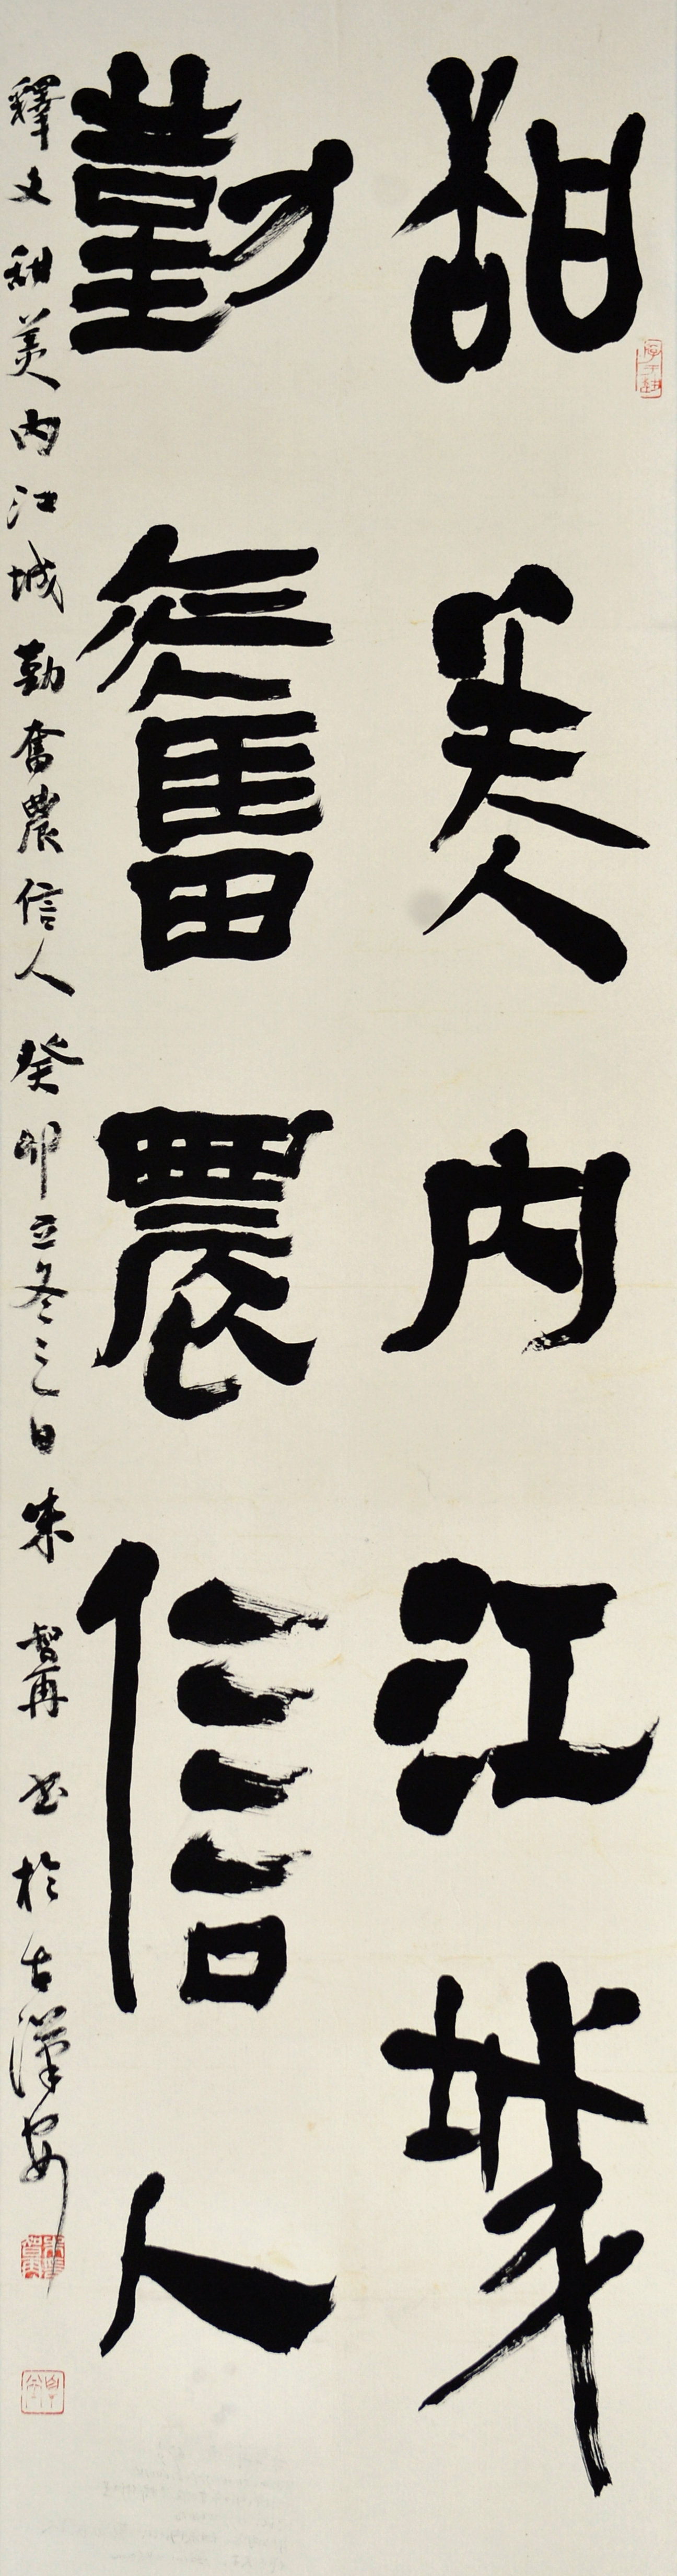 甜美内江城
勤奮農信人
釋文甜美内江城勤奮農信人癸卯立冬三日朱智再书於古漢安